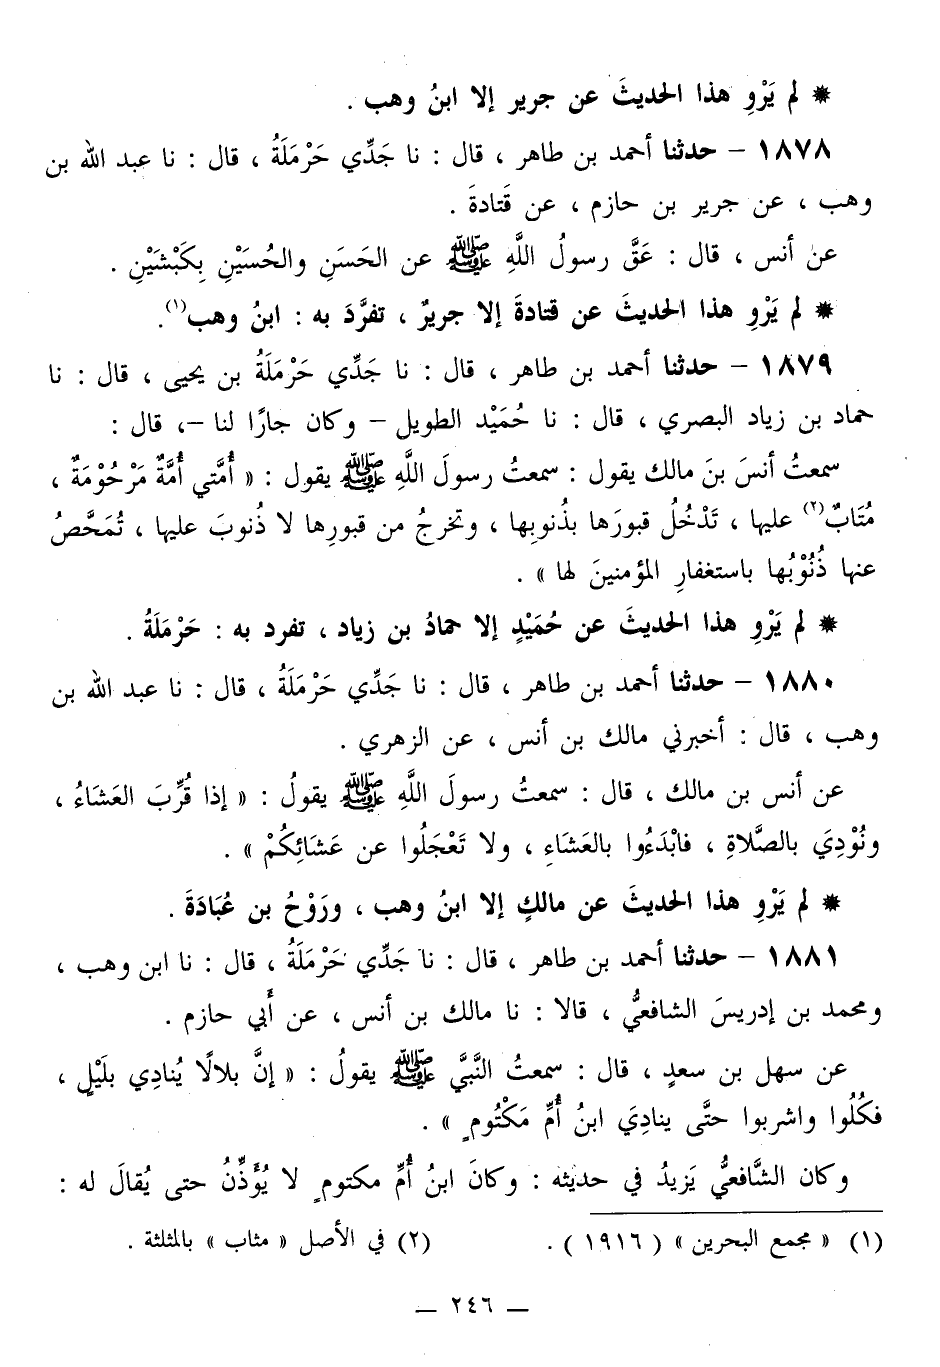 * لم يَرْوِ هذا الحديثَ عن جرير إلا ابنُ وهب .
١٨٧٨ – حدثنا أحمد بن طاهر ، قال : نا جَدِّي حَرْمَلَةُ ، قال : نا عبد الله بن
وهب ، عن جرير بن حازم ، عن قَتادةَ .
عن أنس ، قال : عَقَّ رسولُ اللَّهِ ﷺ عن الحَسَنِ والحُسَيْنِ بِكَبْشَيْنِ .
* لم يَرْوِ هذا الحديثَ عن قتادةَ إلا جريرٌ ، تفرَّدَ به : ابنُ وهب(١).
١٨٧٩ – حدثنا أحمد بن طاهر ، قال : نا جَدِّي حَرْمَلَةُ بن يحيى ، قال : نا
حماد بن زياد البصري ، قال : نا حُمَيْد الطويل – وكان جارًا لنا –، قال :
سمعتُ أنسَ بنَ مالك يقول : سمعتُ رسولَ اللَّهِ ﷺ يقول : « أُمَّتي أُمَّةٌ مَرْحُوْمَةٌ ،
مُتَابٌ(٢) عليها ، تَدْخُلُ قبورَها بذُنوبِها ، وتخرجُ من قبورِها لا ذُنوبَ عليها ، تُمَحَّصُ
عنها ذُنُوْبُها باستغفارِ المؤمنينَ لها » .
* لم يَرْوِ هذا الحديثَ عن حُمَيْدٍ إلا حمادُ بن زياد ، تفرد به : حَرْمَلَةُ .
١٨٨٠ – حدثنا أحمد بن طاهر ، قال : نا جَدِّي حَرْمَلَةُ ، قال : نا عبد الله بن
وهب ، قال : أخبرني مالك بن أنس ، عن الزهري .
عن أنس بن مالك ، قال : سمعتُ رسولَ اللَّهِ ﷺ يقولُ : « إذا قُرِّبَ العَشَاءُ ،
ونُوْدِيَ بالصَّلاةِ ، فابْدَءُوا بالعَشَاءِ ، ولا تَعْجَلُوا عن عَشَائِكُمْ » .
* لم يَرْوِ هذا الحديثَ عن مالكٍ إلا ابنُ وهب ، ورَوْحُ بن عُبَادَةَ .
١٨٨١ – حدثنا أحمد بن طاهر ، قال : نا جَدِّي حَرْمَلَةُ ، قال : نا ابن وهب ،
ومحمد بن إدريسَ الشافعيُّ ، قالا : نا مالك بن أنس ، عن أَبي حازم .
عن سهل بن سعدٍ ، قال : سمعتُ النَّبيَّ ﷺ يقولُ : « إنَّ بلالًا يُنادِي بلَيْلٍ ،
فكُلُوا واشربوا حتَّى ينادِيَ ابنُ أُمِّ مَكْتُومٍ » .
وكان الشَّافعيُّ يَزيدُ في حديثه : وكانَ ابنُ أُمِّ مكتومٍ لا يُؤَذِّنُ حتى يُقالَ له :
(١) « مجمع البحرين » ( ١٩١٦ ) .
(٢) في الأصل « مثاب » بالمثلثة .
– ٢٤٦ –